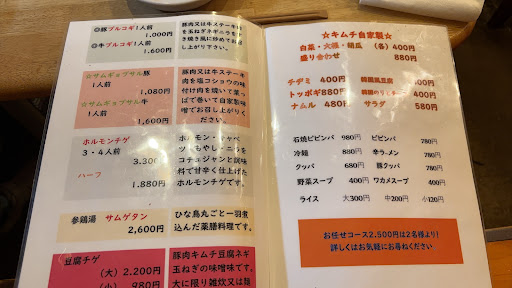 ◎豚プルコギ1人前
1,000円
◎牛プルコギ1人前
1,600円
豚肉又は牛ステーキ
を玉ねぎネギニラを
き焼き風に炒めてお
し上がりください。
☆サムギョプサル豚
1人前
1,100円
☆サムギョプサル牛
1人前
1,600円
豚肉又は牛ステーキ
肉を塩コショウの味
付け肉を焼いて葉っ
ぱで巻いて自家製味
噌でお召し上がりく
ださい。
ホルモンチゲ
3・4人前
3.300
ハーフ
1.880円
ホルモン・キャベ
ツ・もやし・ニラを
コチュジャンと調味
料で甘辛く仕上げた
ホルモンチゲです。
参鶏湯 サムゲタン
2,600円
ひな鳥丸ごと一羽煮
込んだ薬膳料理です。
豆腐チゲ
(大) 2.200円
(小) 980円
豚肉キムチ豆腐ネギ
玉ねぎの味噌味です。
大に限り雑炊又は
☆キムチ自家製☆
白菜・大根・胡瓜 (各) 400円
盛り合わせ 880円
チヂミ 400円
韓国風豆腐 400円
トッポギ880円
韓国のり 400円
ナムル 480円
サラダ 580円
石焼ビビンバ 980円
ビビンバ 780円
冷麺 880円
辛ラーメン 780円
クッパ 680円
豚クッパ 780円
野菜スープ 400円
ワカメスープ 400円
ライス 大300円 中200円 小120円
お任せコース2,500円は2名様より!
詳しくはお気軽にお尋ねください